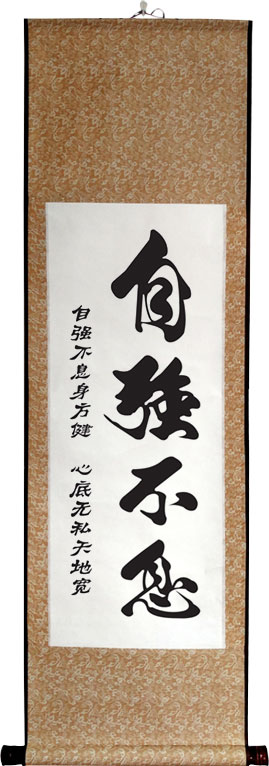 自强不息
自强不息身方健 心底无私天地宽